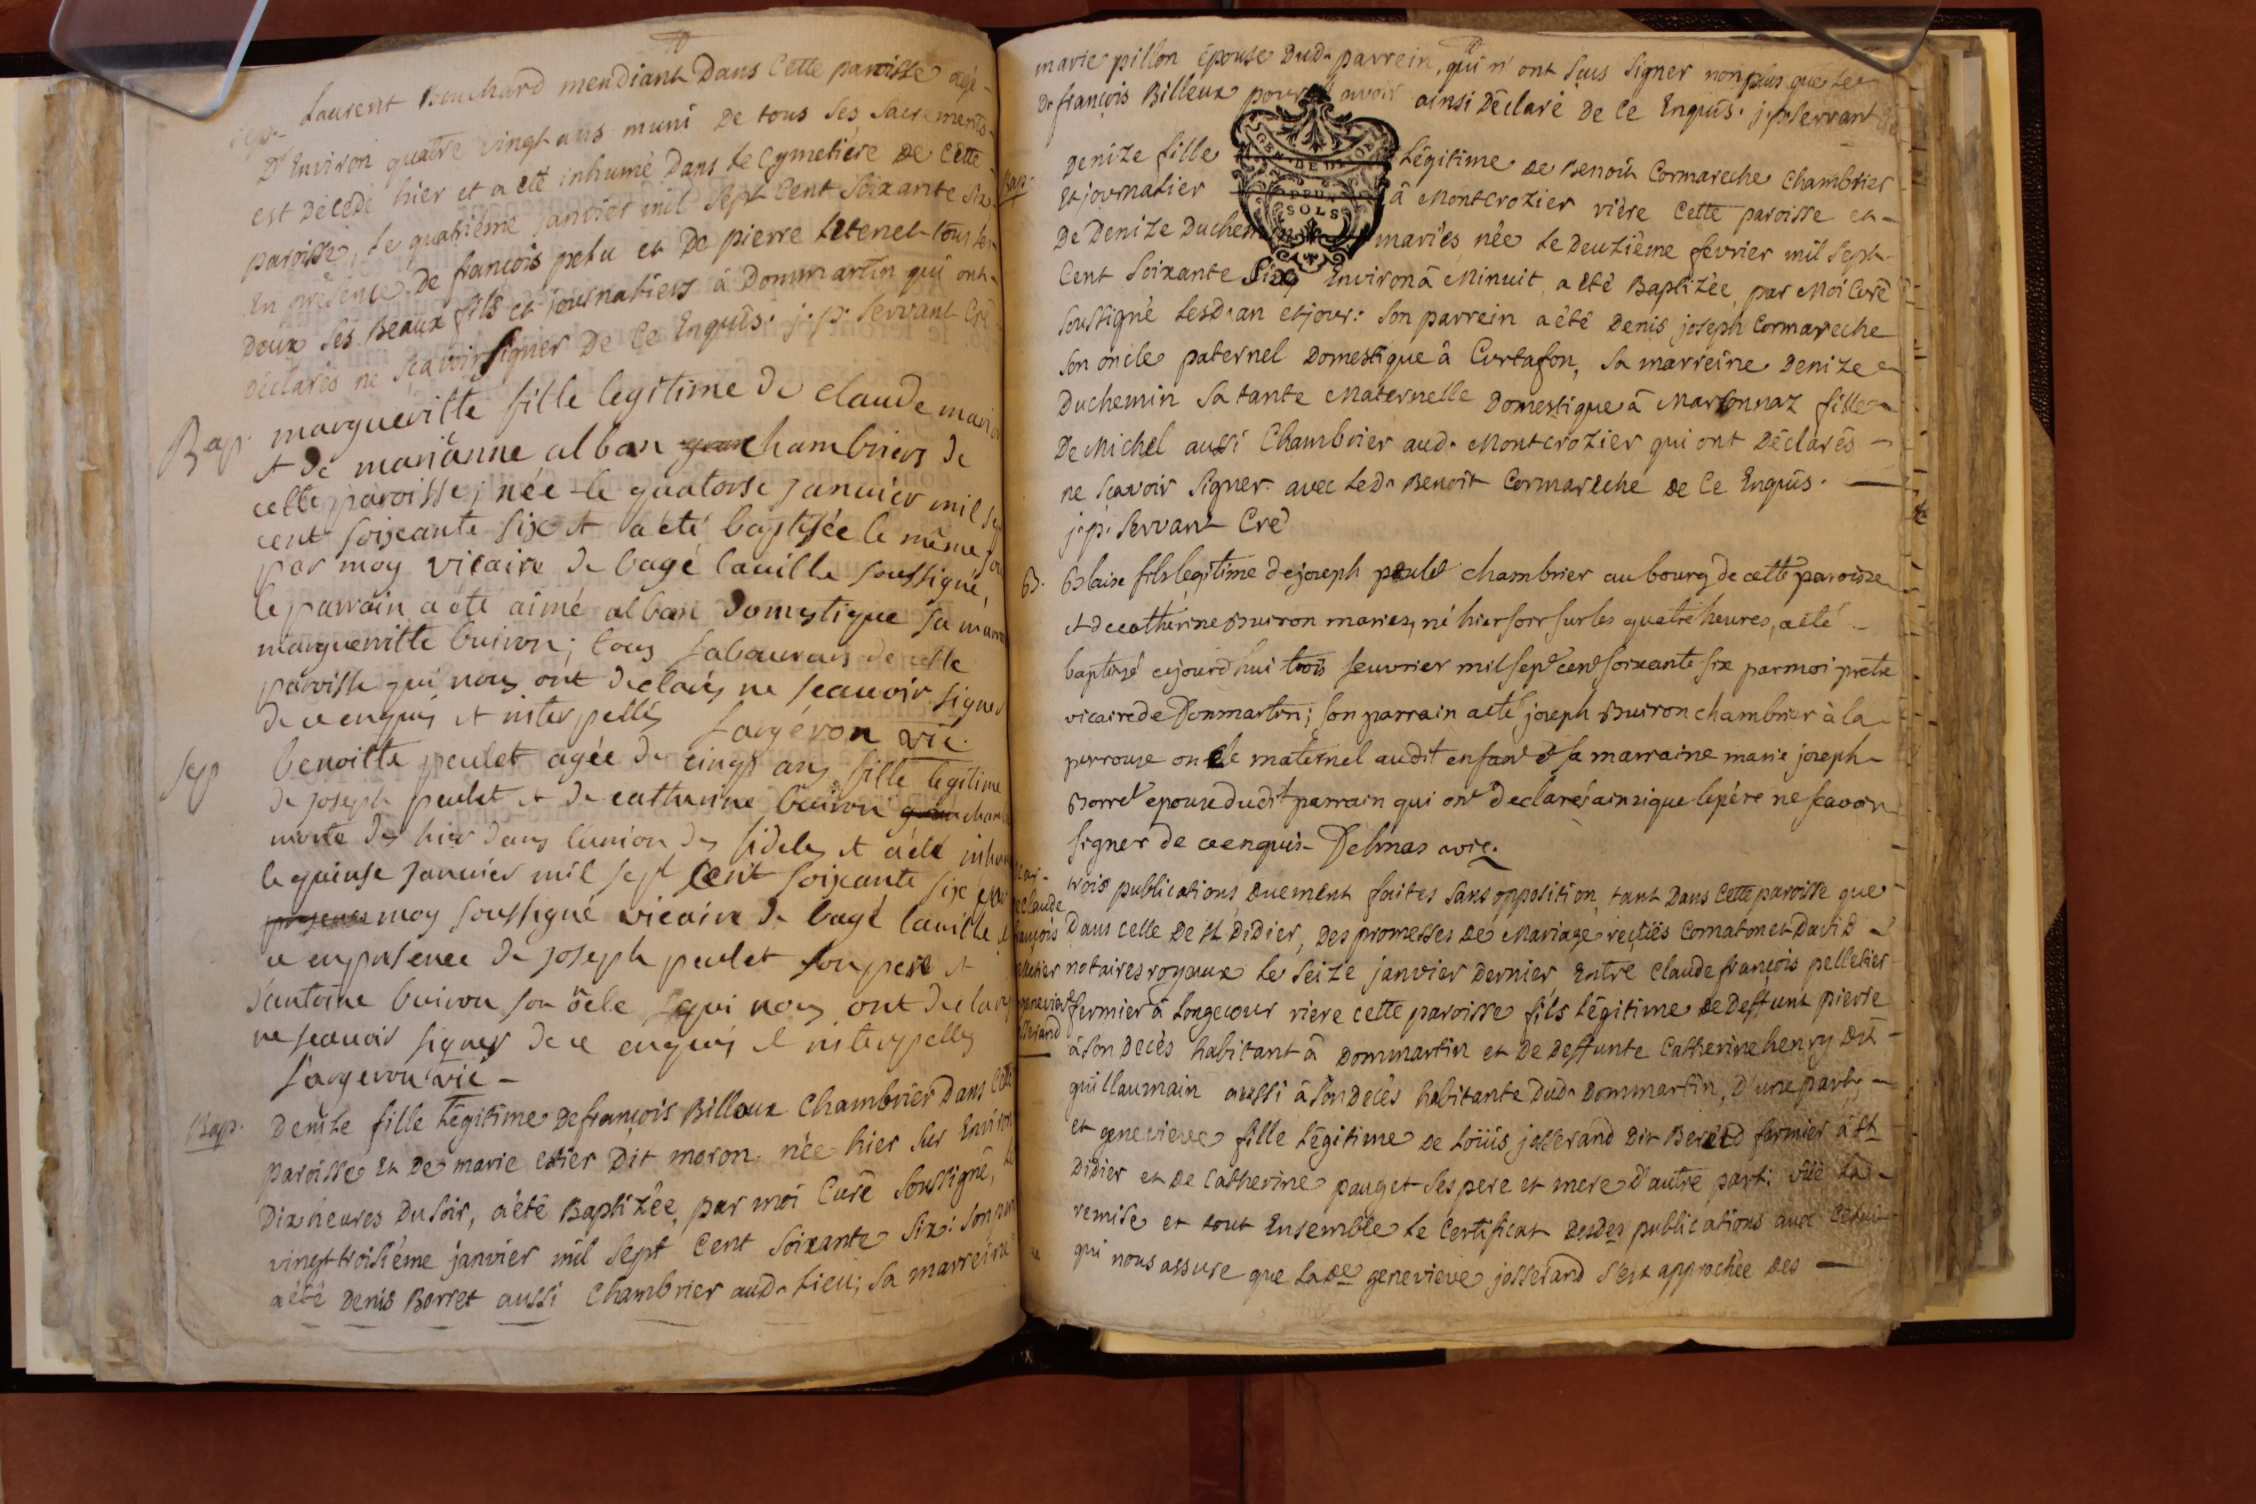 sep. Laurent Bouchard mendiant Dans Cette paroisse agé
D'Environ quatre vingt ans muni De tous Ses Sacrements
est Décédé hier et a eté inhumé Dans Le Cymetiere De Cette
paroisse, Le quatriéme janvier mil Sept Cent Soixante Six
En présence De françois pelu et De pierre tous
Deux Ses Beaux fils et journaliers á Dommartin qui ont
Déclarés ne Sçavoir Signer De Ce Enquis. j. p. Servant Cré
Bap. margueritte fille legitime de claude
et de marianne alban chambriers de
cette paroisse, née le quatorse janvier mil
cent soixante six et a été baptisée le même
par moy vicaire de bagé lauille soussigné,
le parrain a été aimé alban domestique sa
margueritte buiron; tous laboureurs de cette
paroisse qui nous ont declarés ne scauoir signer
de ce enquis et interpellés fargéron vic.
sep benoitte peulet agée de cinqs ans fille legitime
de joseph peulet et de catherine buiron
morte des hier dans l'union des fideles et a été
le quinse janvier mil sept cent soixante six par
moy soussigné vicaire de bagé lauille
en presence de joseph peulet son pere et
d'antoine buiron son oncle qui nous ont
ne scauoir signer de ce enquis et interpellés
fargeron vic
Bap. Denize fille Légitime De françois Billoux Chambrier Dans
paroisse Et De marie Dit moron née hier Sur Environ
Dix heures Du Soir, a été Baptizée, par moi Curé Soussigné,
vingt troisiéme janvier mil Sept Cent Soixante Six: Son
a été Denis Borret aussi Chambrier aud. Lieu; Sa marreine
marie pillon épouse Dud. parrein, qui n'ont Sçus Signer non plus que Le
Dr françois Billeux pour avoir ainsi Déclaré De Ce Enquis. j. p. Servant
GEN. DE DIJON
DEUX
SOLS
Bap. Denize fille Légitime De Benoit Cormareche Chambrier
Et journalier á Montcrozier riére Cette paroisse et
De Denize Duchemin mariés, née Le Deuziéme fevrier mil Sept
Cent Soixante Six Environ á Minuit a été Baptizée, par Moi Curé
Soussigné Lesd. an et jour: Son parrein a été Denis joseph Cormareche
Son oncle paternel Domestique á Curtafon, Sa marreine Denize
Duchemin Sa tante Maternelle Domestique á Marsonnaz fille
De Michel aussi Chambrier aud. Montcrozier qui ont Déclarés
ne Sçavoir Signer avec Led. Benoit Cormareche De Ce Enquis.
j. p. Servant Cré
B. Blaise fils legitime de joseph peulet chambrier au bourg de cette paroisse
et de catherine Buiron maries, né hier soir sur les quatre heures, a été
baptizé cejourd'hui trois feuvrier mil sept cent soixante six par moi prêtre
vicaire de Donmartin; son parrain a été joseph Buiron chambrier à la
perrouse oncle maternel audit enfant et sa marraine marie joseph
Borret epouse dudit parrain qui ont declarés ainsi que le père ne scavoir
signer de ce enquis. Delinas vic.
trois publications Duement faites Sans opposition, tant Dans Cette paroisse que
Dans celle De St Didier, Des promesses De Mariage reçües Comaton et David
notaires royaux Le Seize janvier Dernier, Entre Claude françois pelletier
fermier á Longecour riére cette paroisse fils Légitime De Deffunt pierre
á Son Decès habitant á Dommartin et De Deffunte Catherine henry Dit
guillaumain aussi á Son Decès habitante Dud. Dommartin, D'une part,
et genevieve fille Légitime De Loüis josserand Dit fermier á St
Didier et De Catherine pauget Ses pere et mere D'autre part: Vüe La
remise et tout Ensemble Le Certificat Desdes publications avec Celui
qui nous assure que Lade genevieve josserand S'est approchée Des